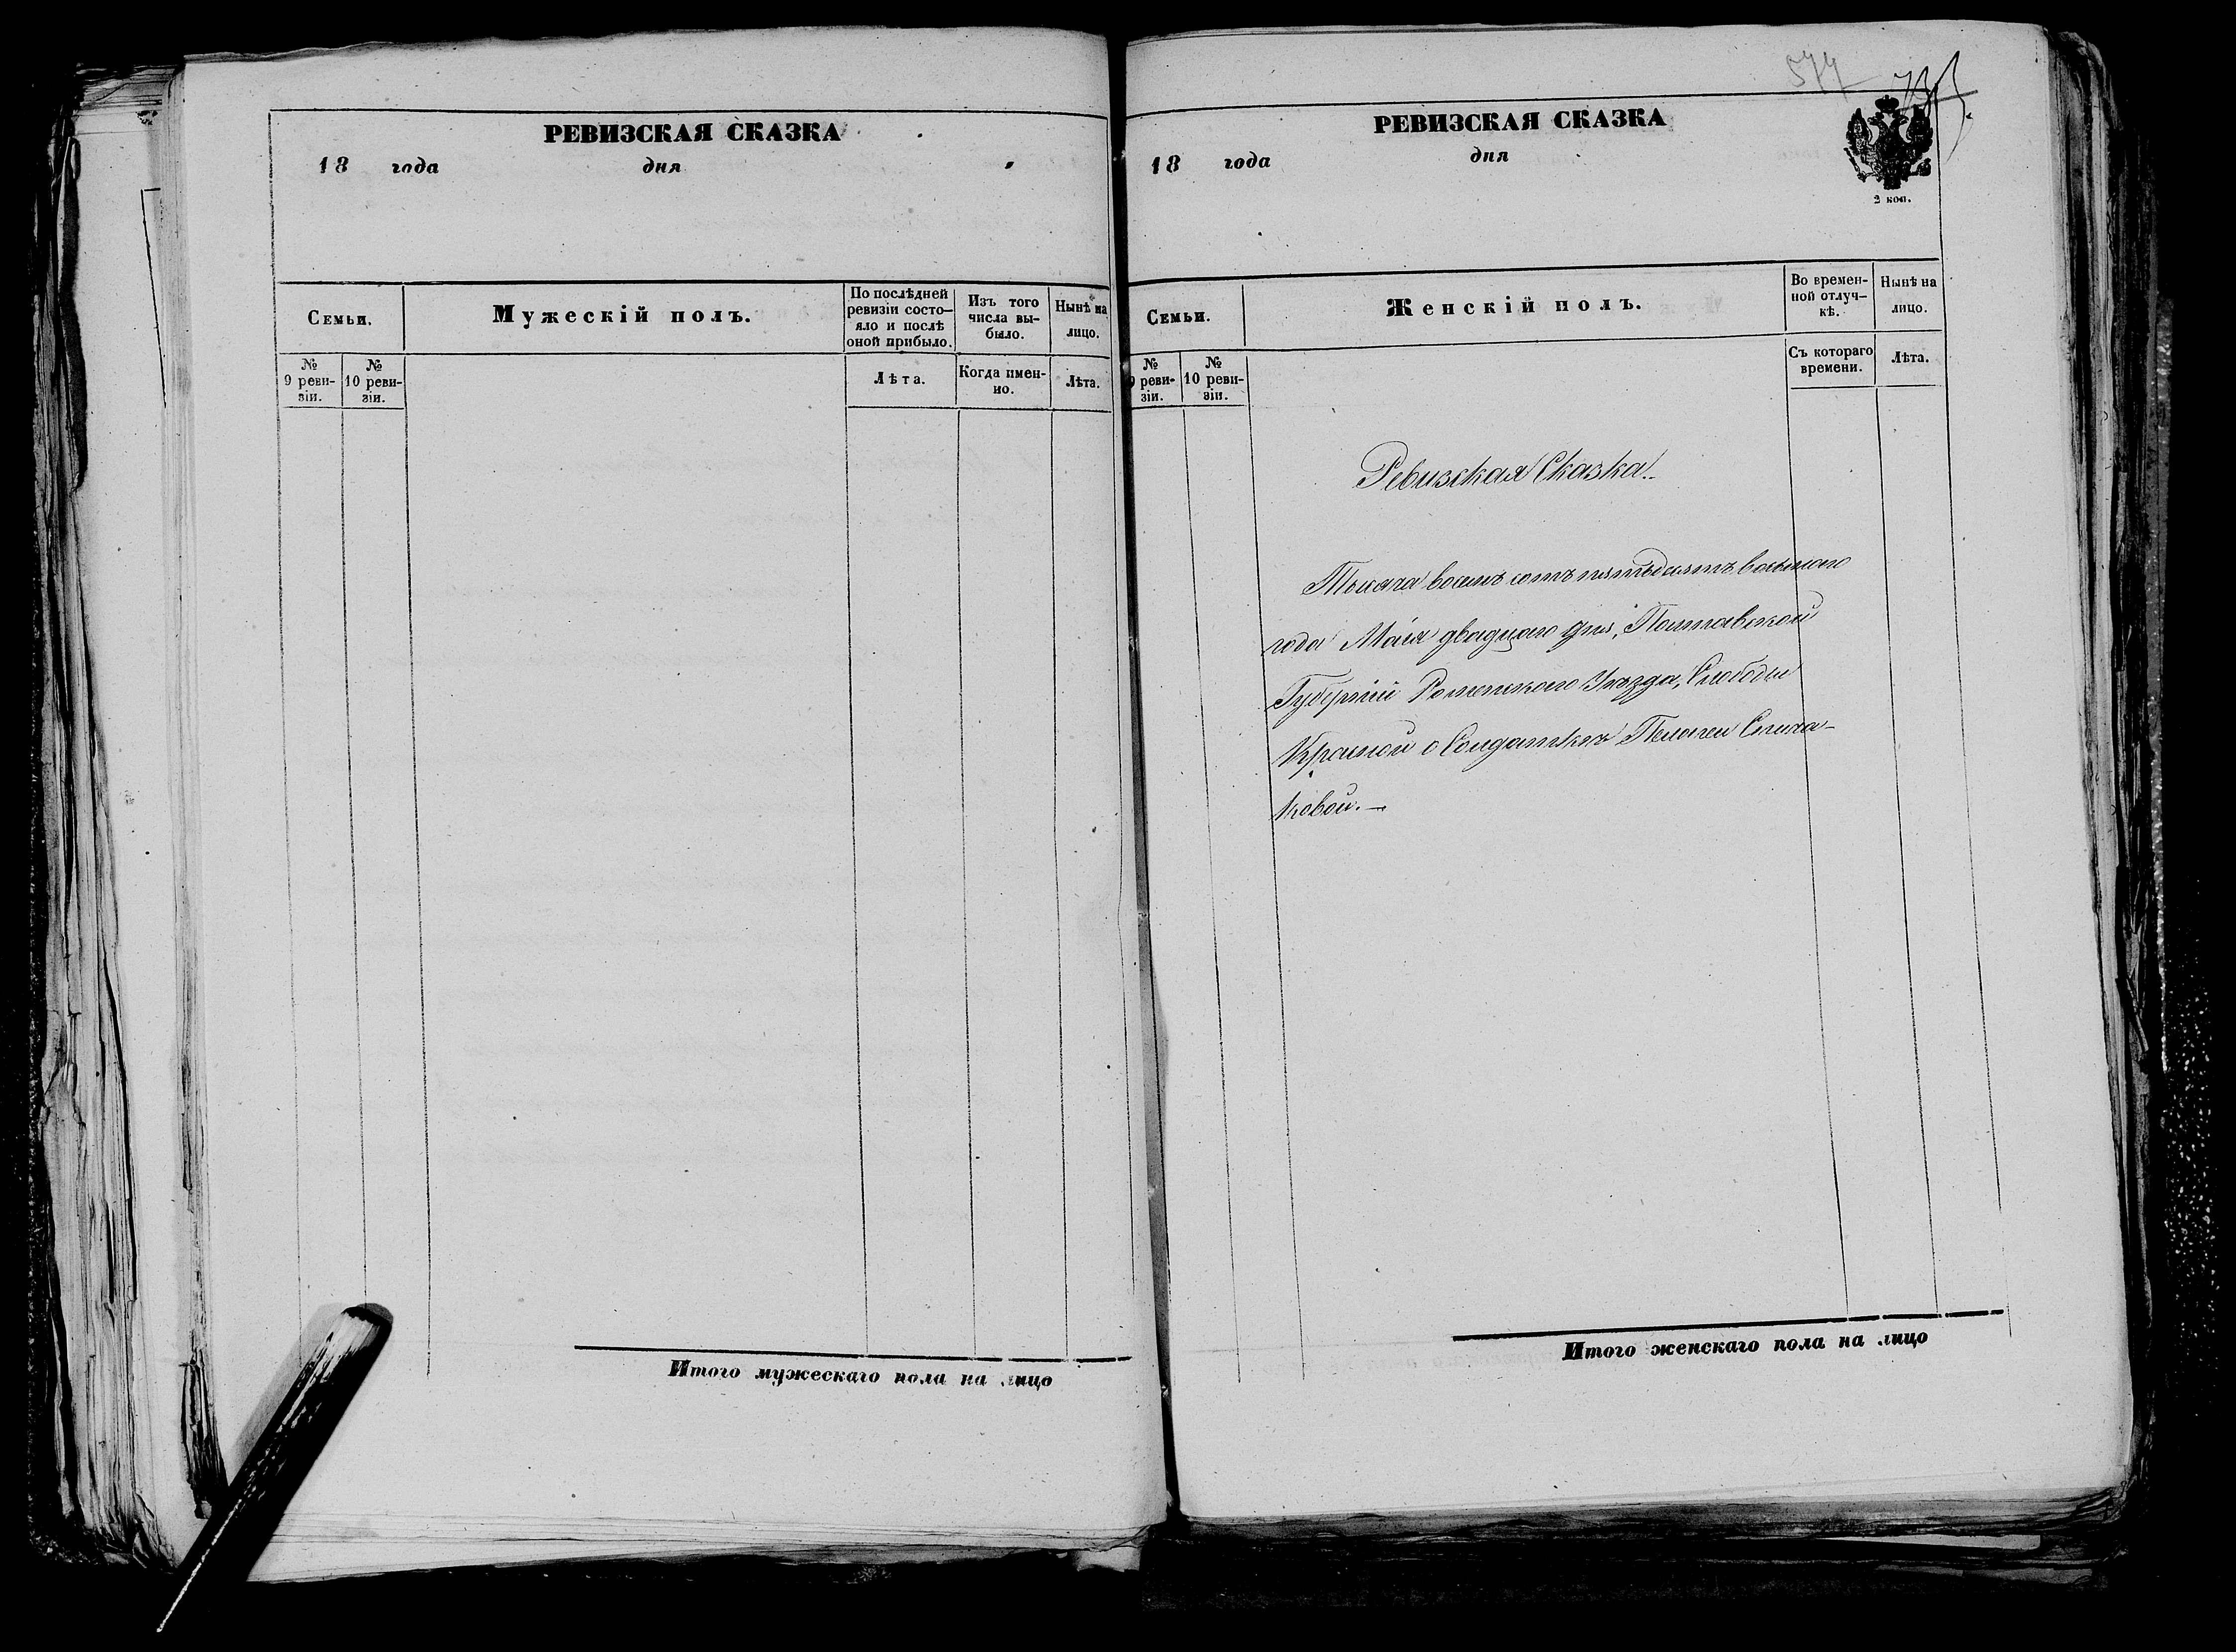 РЕВИЗСКАЯ СКАЗКА
18 года дня
Семьи.
Мужескій полъ.
По послѣдней ревизіи состояло и послѣ оной прибыло.
Изъ того числа выбыло.
Нынѣ на лицо.
№ 9 ревизіи.
№ 10 ревизіи.
Лѣта.
Когда именно.
Лѣта.
Итого мужескаго пола на лицо
577
РЕВИЗСКАЯ СКАЗКА
18 года дня
2 коп.
Семьи.
Женскій полъ.
Во временной отлучкѣ.
Нынѣ на лицо.
№ 9 ревизіи.
№ 10 ревизіи.
Съ котораго времени.
Лѣта.
Ревизская Сказка.
Тысяча восемь сотъ пятьдесятъ восьмаго
года Маія двадцаго дня, Полтавской
Губерніи Роменскаго Уѣзда, Слободы
о Солдаткѣ Пелагеи
ковой.—
Итого женскаго пола на лицо